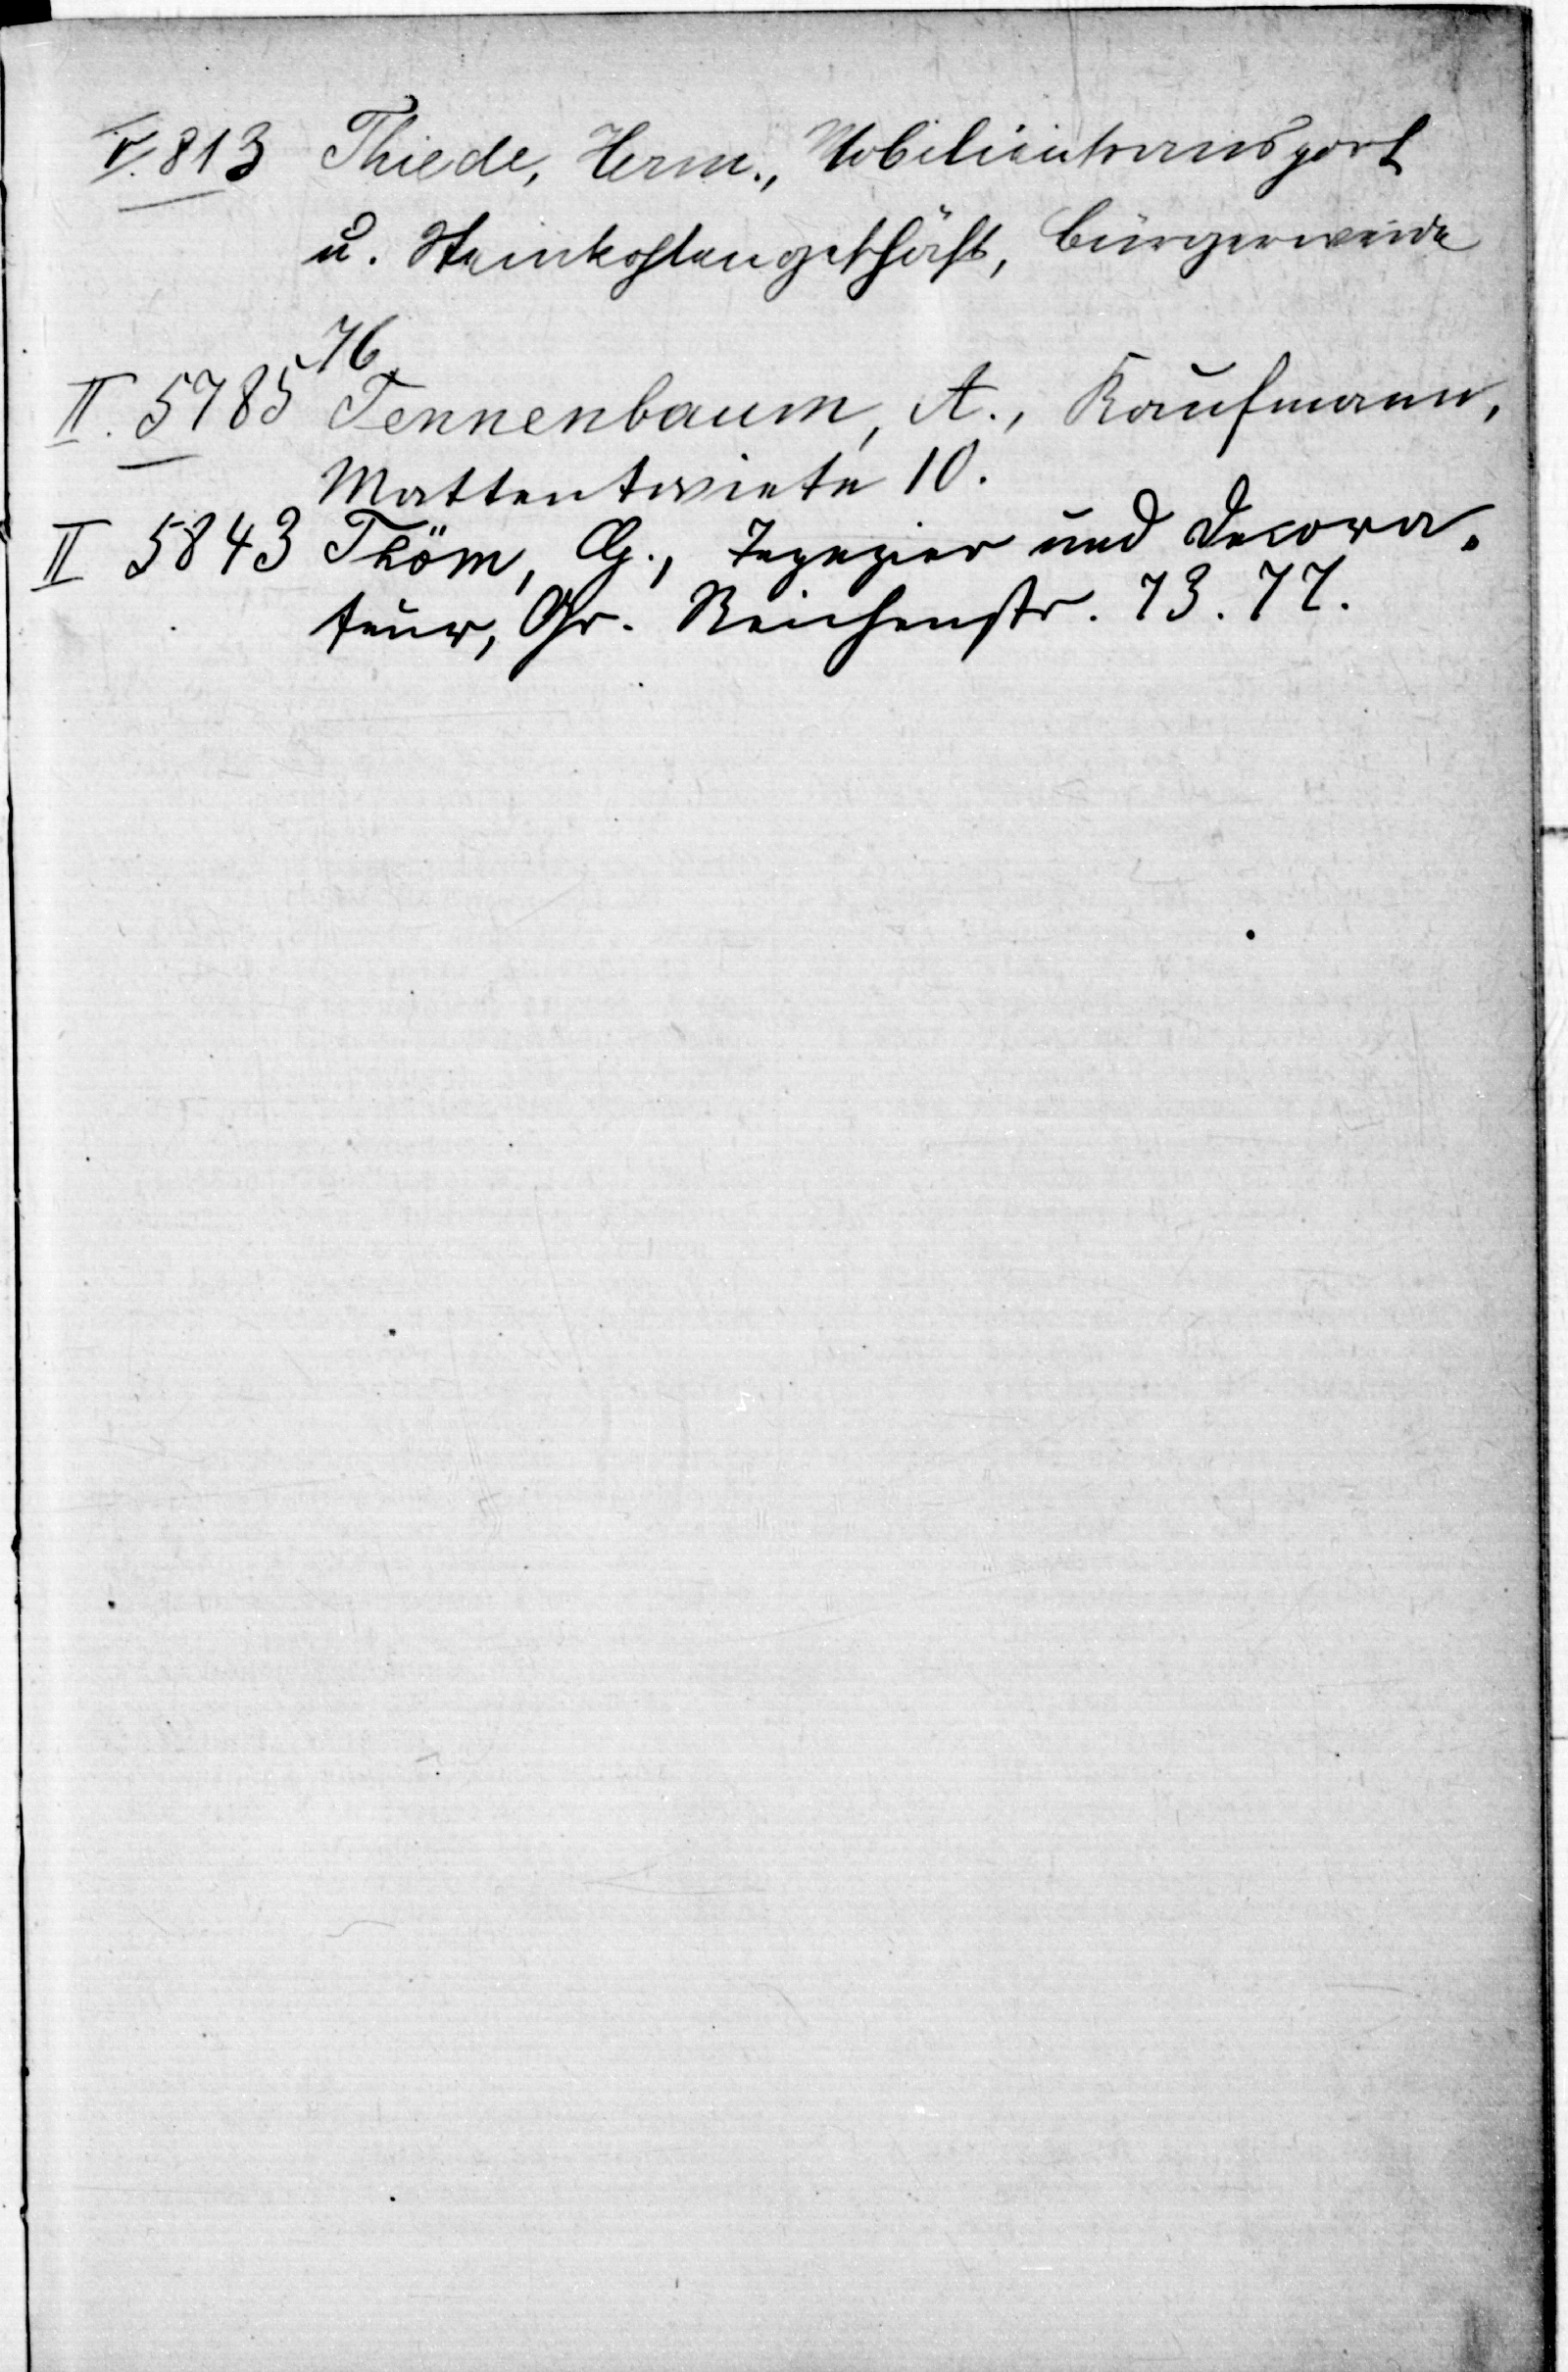 V. 813 Thiede, Herm., Mobilientransport
u. Steinkohlengeschäft, Bürgerweide
76
II. 5785 Tennenbaum, A., Kaufmann,
Mattentwiete 10.
II 5843 Thöm, G., Tapezier und Decora-
teur, Gr. Reichenstr. 73. 77.